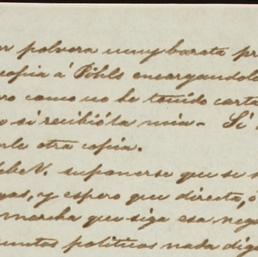 polvora muy barata pr
copia á Pöhls encargandole
ro como no he tenido carta
o si recibió la mia - Si
le otra copia.
debe V. suponerse que se
gas, y espero que directa, ó
marcha que siga esa nego
suntos politicos nada dig